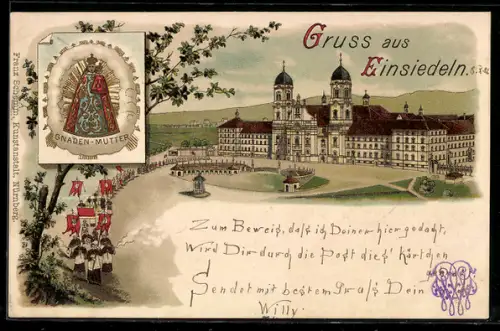 Gruss aus
Einsiedeln.
GNADEN-MUTTER
Franz Scheiner, Kunstanstalt, Nürnberg.
Zum Beweis, daß ich Deiner hier gedacht,
Wird Dir durch die Post dies' Kärtchen
Sendet mit bestem Gruß Dein
Willy.